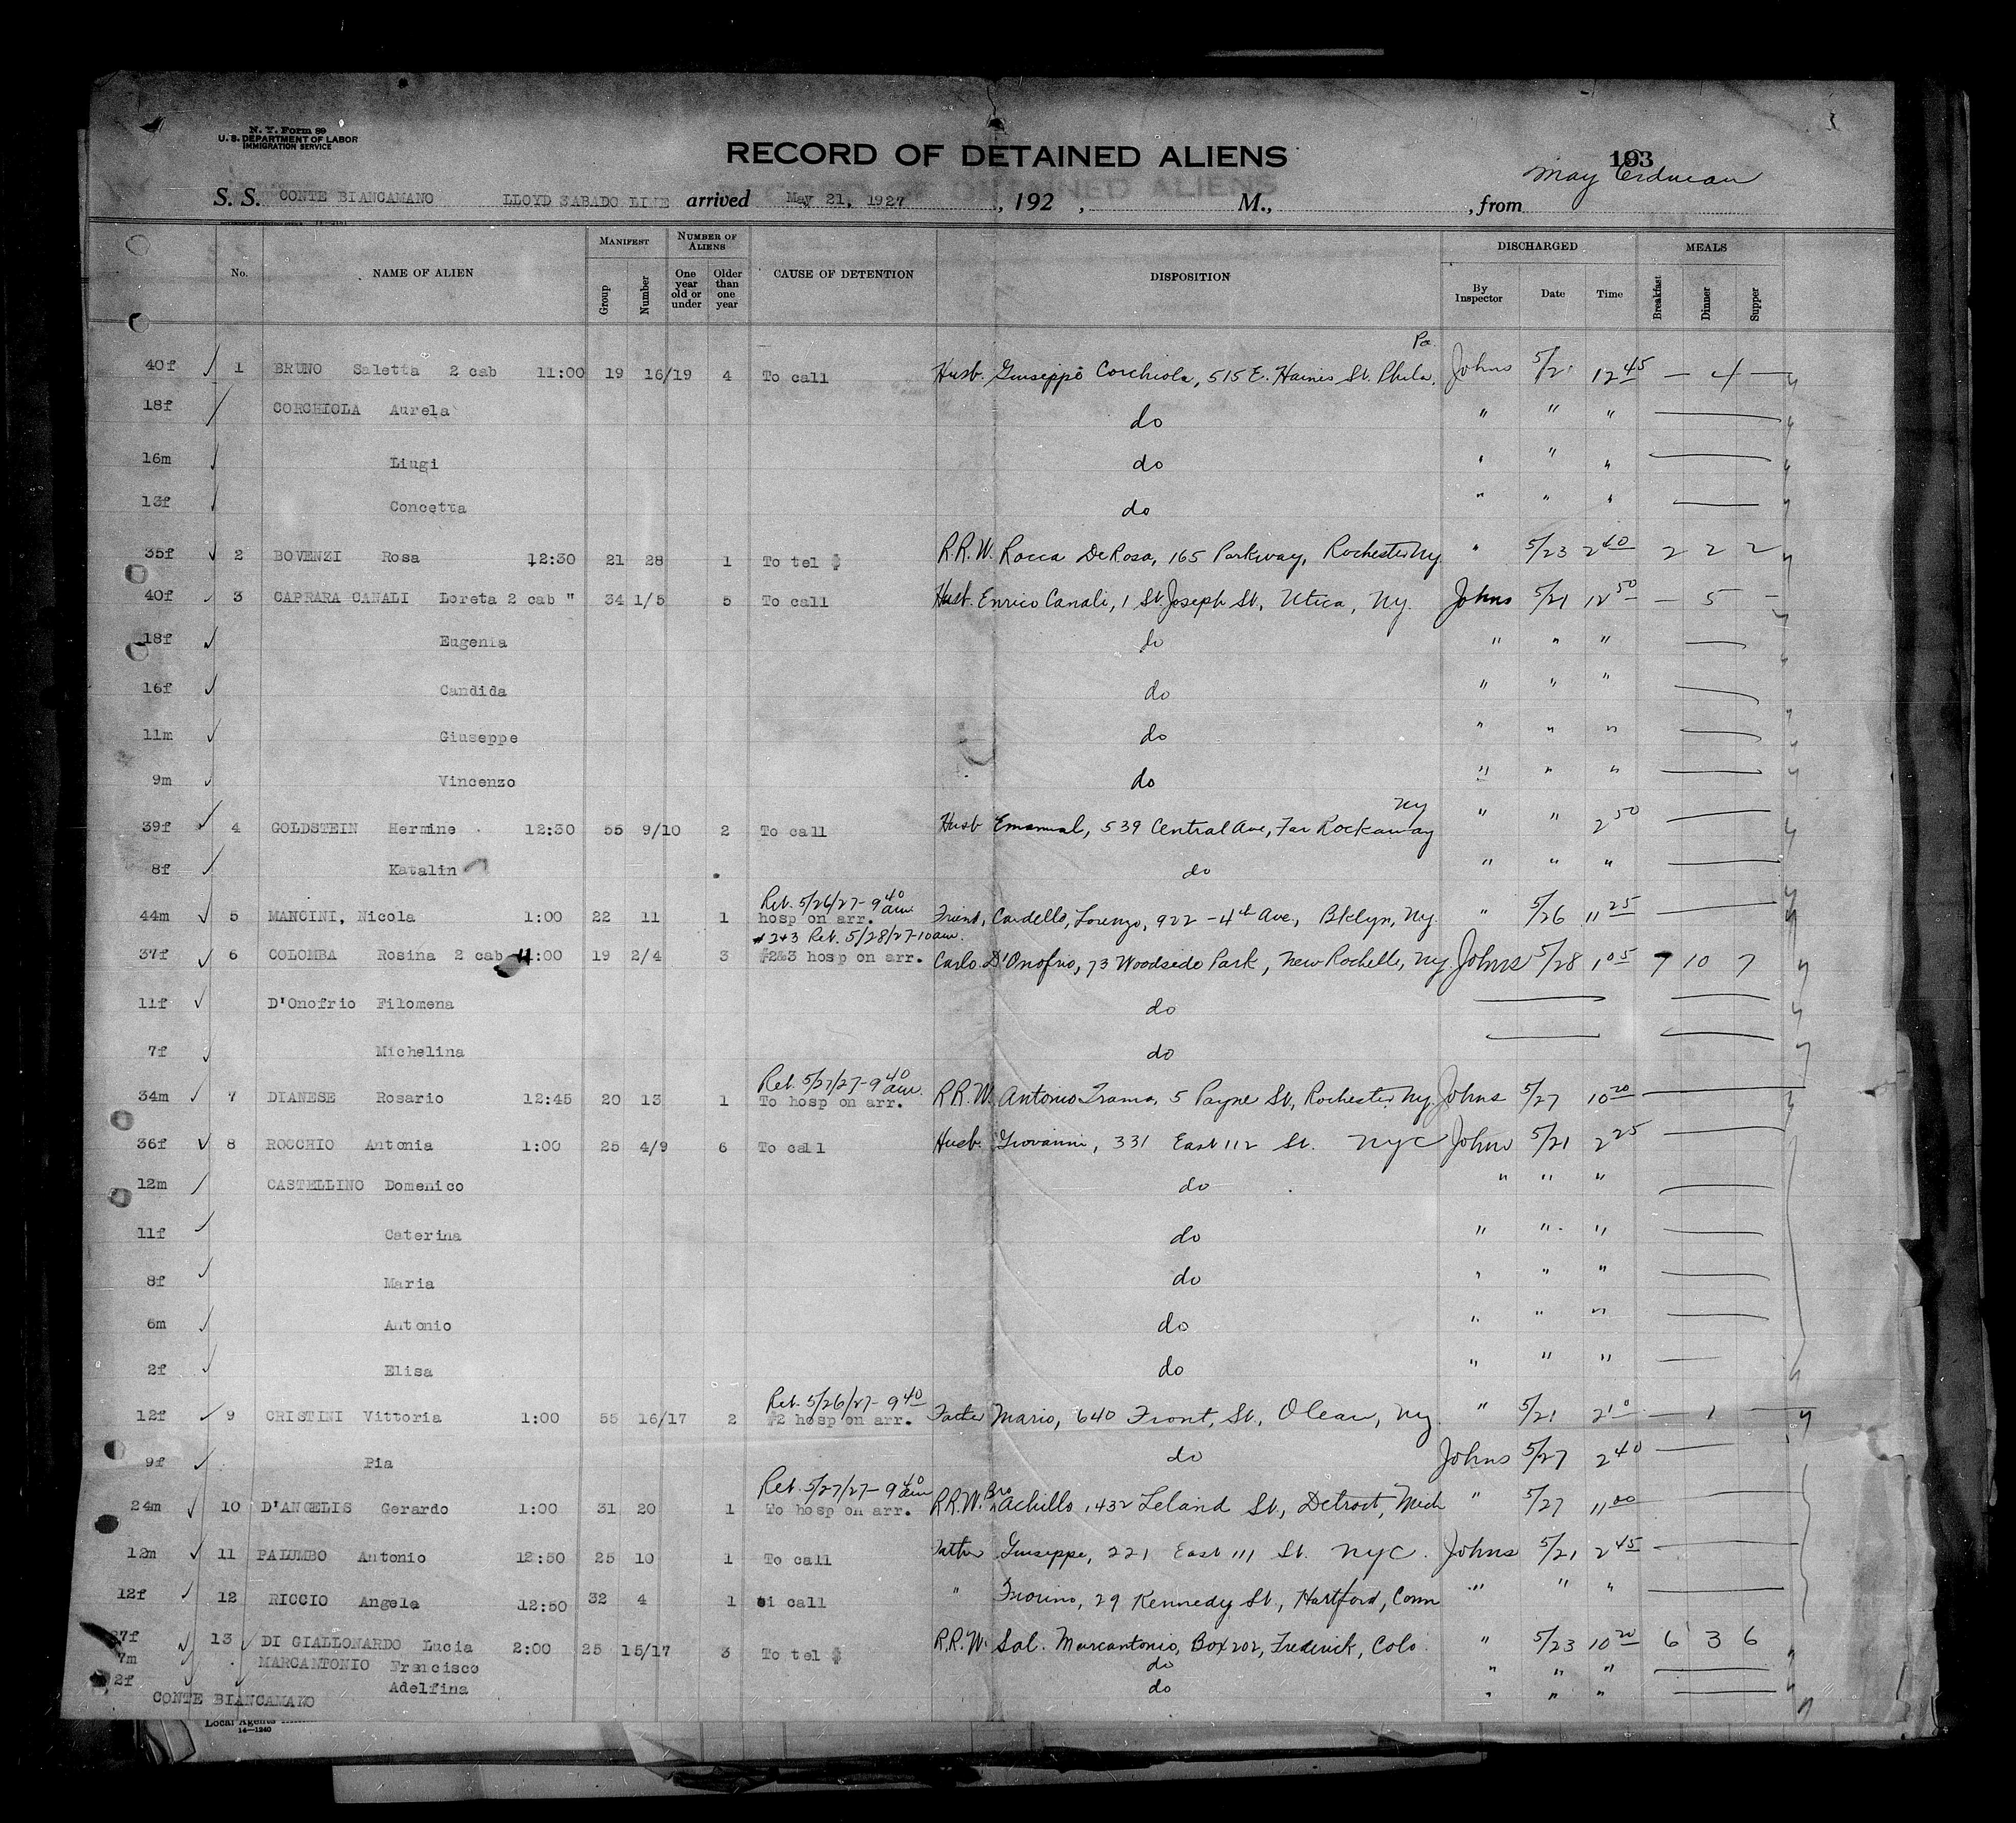 N. Y. Form 89
U. S. DEPARTMENT OF LABOR
IMMIGRATION SERVICE
RECORD OF DETAINED ALIENS
193
S. S. CONTE BIANCAMANO LLOYD SABADO LINE arrived May 21, 1927, 192 , M., , from May Erdman
No. NAME OF ALIEN MANIFEST Group Number NUMBER OF ALIENS One year old or under Older than one year CAUSE OF DETENTION DISPOSITION DISCHARGED By Inspector Date Time MEALS Breakfast Dinner Supper
Pa.
40f 1 BRUNO Saletta 2 cab 11:00 19 16/19 4 To call Husb. Giuseppe Corchiola, 515 E. Haines St. Phila. Johns 5/21 12 45 — 4 —
18f CORCHIOLA Aurela do " " "
16m Liugi do " " "
13f Concetta do " " "
35f 2 BOVENZI Rosa 12:30 21 28 1 To tel $ R.R.W. Rocca DeRosa, 165 Parkway, Rochester Ny. " 5/23 2 40 2 2 2
40f 3 CAPRARA CANALI Loreta 2 cab " 34 1/5 5 To call Husb. Enrico Canali, 1 St. Joseph St, Utica, Ny. Johns 5/21 12 50 — 5 —
18f Eugenia do " " "
16f Candida do " " "
11m Giuseppe do " " "
9m Vincenzo do " " "
Ny
39f 4 GOLDSTEIN Hermine 12:30 55 9/10 2 To call Husb Emanual, 539 Central Ave, Far Rockaway " " 2 50
8f Katalin do " " "
Ret. 5/26/27 - 9 40 am
44m 5 MANCINI, Nicola 1:00 22 11 1 hosp on arr. Friend, Cardello, Lorenzo, 922 - 4th Ave, Bklyn, Ny. " 5/26 11 25
#2+3 Ret. 5/28/27 - 10 am.
37f 6 COLOMBA Rosina 2 cab 11:00 19 2/4 3 #2&3 hosp on arr. Carlo D'Onofrio, 73 Woodside Park, New Rochelle, Ny. Johns 5/28 1 05 7 10 7
11f D'Onofrio Filomena do
7f Michelina do
Ret. 5/27/27 - 9 40 am.
34m 7 DIANESE Rosario 12:45 20 13 1 To hosp on arr. R.R.W. Antonio Trama, 5 Payne St, Rochester Ny. Johns 5/27 10 20
36f 8 ROCCHIO Antonia 1:00 25 4/9 6 To call Husb. Giovanni, 331 East 112 St. NYC Johns 5/21 2 25
12m CASTELLINO Domenico do " " "
11f Caterina do " " "
8f Maria do " " "
6m Antonio do " " "
2f Elisa do " " "
Ret. 5/26/27 - 9 40
12f 9 CRISTINI Vittoria 1:00 55 16/17 2 #2 hosp on arr. Father Mario, 640 Front, St, Olean, Ny. " 5/21 2 10 — 1 —
9f Pia do Johns 5/27 2 40
Ret. 5/27/27 - 9 40 am
24m 10 D'ANGELIS Gerardo 1:00 31 20 1 To hosp on arr. R.R.W. Bro Achillo, 432 Leland St, Detroit, Mich " 5/27 11 00
12m 11 PALUMBO Antonio 12:50 25 10 1 To call Father Giuseppe, 221 East 111 St. NYC. Johns 5/21 2 45
12f 12 RICCIO Angela 12:50 32 4 1 ti call " Fiorino, 29 Kennedy St, Hartford, Conn " " "
37f 13 DI GIALLONARDO Lucia 2:00 25 15/17 3 To tel $ R.R.W. Sal. Marcantonio, Box 202, Frederick, Colo. " 5/23 10 20 6 3 6
7m MARCANTONIO Francisco do " " "
2f Adelfina do " " "
CONTE BIANCAMANO
Local Agents
14—1240